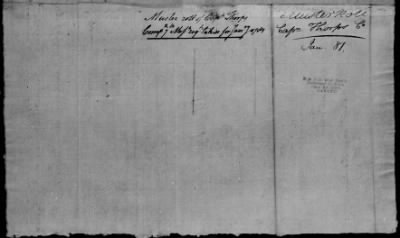 Muster roll of Capt Thorps
Comp 7th Mass regt taken for Jany 1781
Muster Roll
Capn Thorps Co
Jan 81.